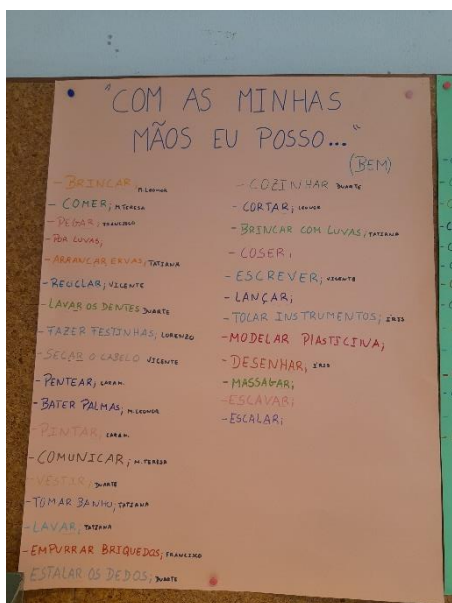 "COM AS MINHAS
MÃOS EU POSSO..."
(BEM)
- BRINCAR, M. LEONOR
- COMER; M. TERESA
- PEGAR; FRANCISCO
- POR LUVAS;
- ARRANCAR ERVAS; TATIANA
- RECICLAR; VICENTE
- LAVAR OS DENTES DUARTE
- FAZER FESTINHAS; LORENZO
- SECAR O CABELO VICENTE
- PENTEAR; LARA M.
- BATER PALMAS; M. LEONOR
- PINTAR; LARA M.
- COMUNICAR; M. TERESA
- VESTIR; DUARTE
- TOMAR BANHO; TATIANA
- LAVAR; TATIANA
- EMPURRAR BRIQUEDOS; FRANCISCO
- ESTALAR OS DEDOS; DUARTE
- COZINHAR DUARTE
- CORTAR; LEONOR
- BRINCAR COM LUVAS; TATIANA
- COSER;
- ESCREVER; VICENTE
- LANÇAR;
- TOCAR INSTRUMENTOS; ÍRIS
- MODELAR PLASTICINA;
- DESENHAR; ÍRIS
- MASSAGAR;
- ESCAVAR;
- ESCALAR;